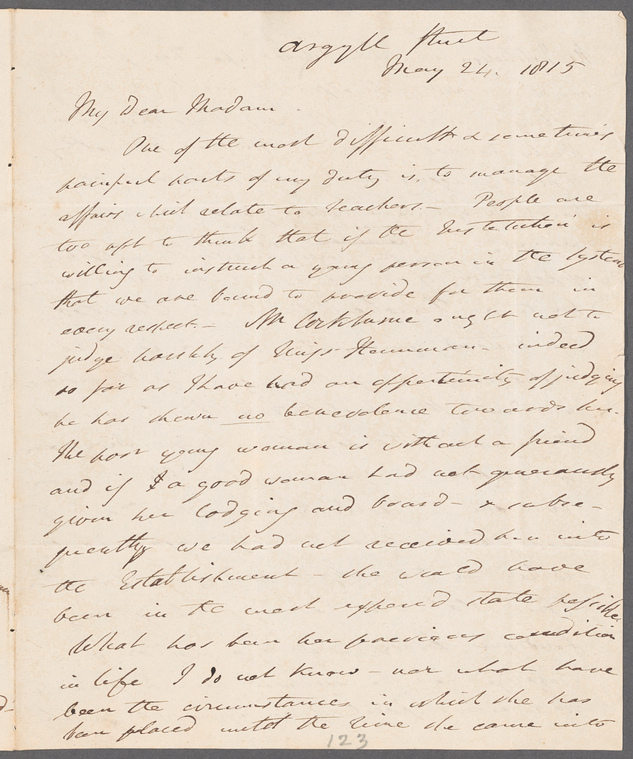 Argyll Street
May 24. 1815
My Dear Madam.
One of the most difficult & sometimes
painful parts of my duty is to manage the
affairs which relate to teachers.— People are
too apt to think that if the Institution is
willing to instruct a young person in the system
that we are bound to provide for them in
every respect.— Mr ought not to
judge harshly of Miss — indeed
so far as I have had an opportunity of judging
he has shewn no benevolence towards her.
The poor young woman is without a friend
and if a good woman had not generously
given her lodging and board — & subse-
quently we had not received her into
the Establishment — she would have
been in the most exposed state possible
What has been her previous condition
in life I do not know — nor what have
been the circumstances in which she has
been placed until the time she came into
123